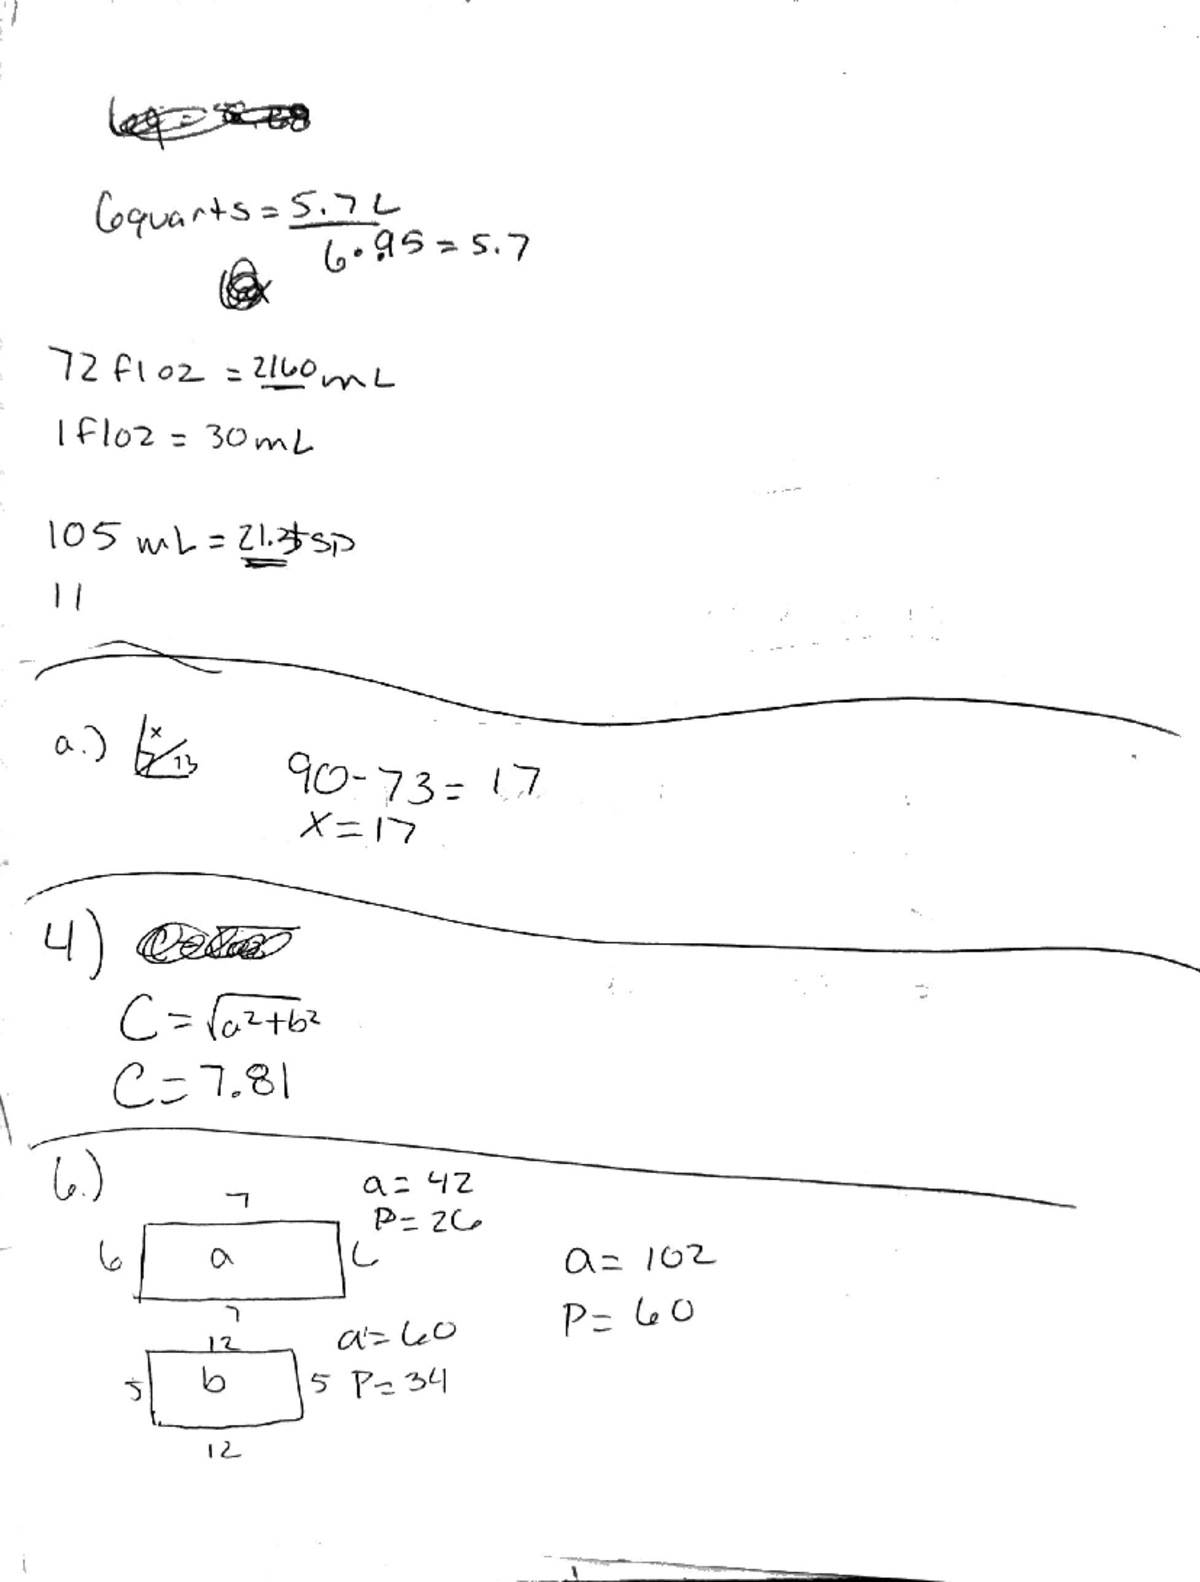 6quarts = 5.7 L
6 · .95 = 5.7
72 fl oz = 2160 mL
1 fl oz = 30 mL
105 mL = 21.3 tsp
11
a.) x 73
90 - 73 = 17
x = 17
4)
C = √a²+b²
C = 7.81
6.)
7
a = 42
P = 26
6 a 6
7
a = 102
P = 60
12
a = 60
5 b 5 P = 34
12